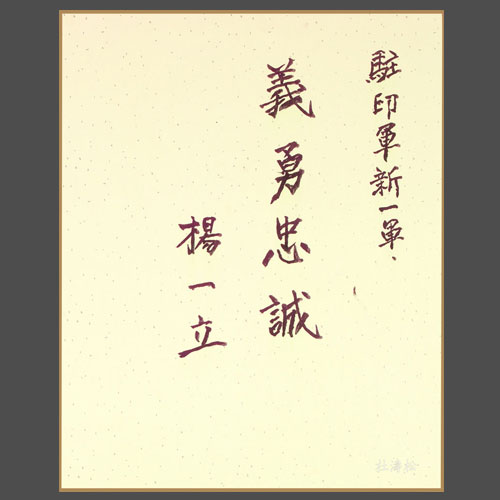 駐印軍新一軍、
義勇忠誠
楊一立